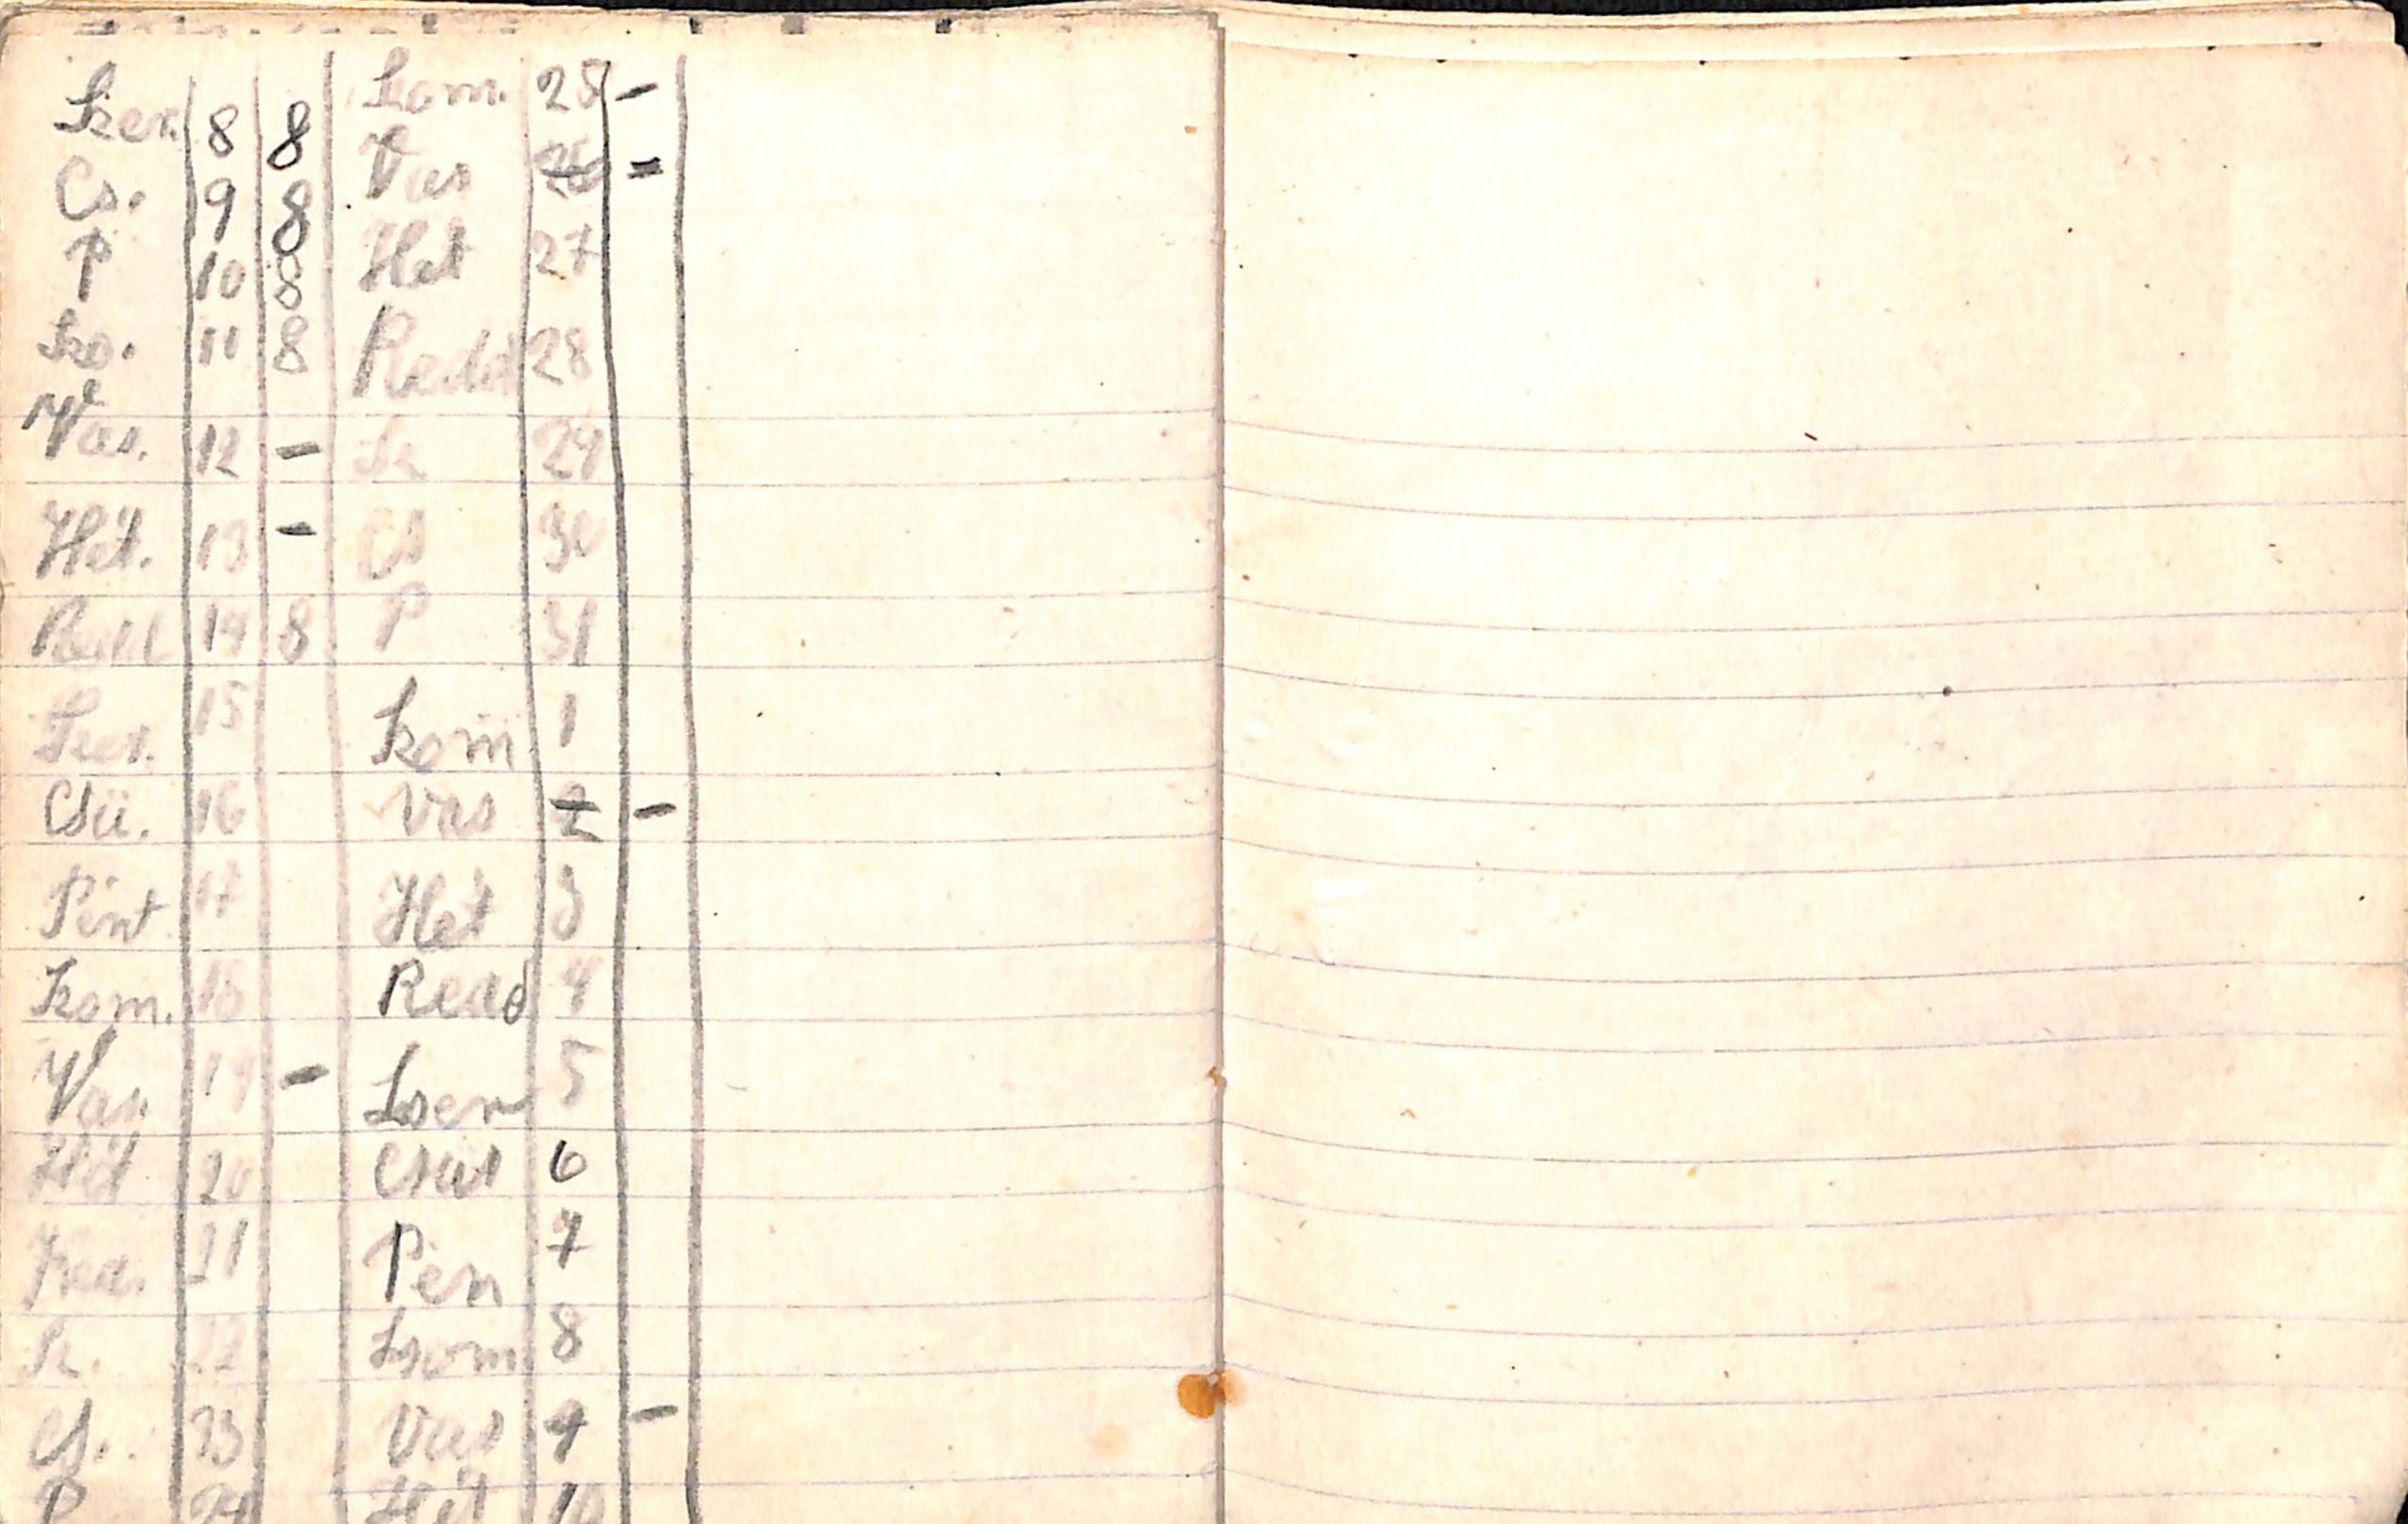 Szer. 8 8
Cs. 9 8
P 10 8
Szo. 11 8
Vas. 12 -
Hét. 13 -
Kedd 14 8
Szer. 15
Csü. 16
Pént 17
Szom. 18
Vas. 19 -
Hét 20
Ked. 21
Sz. 22
Cs. 23
P 24
Szom. 25 -
Vas 26 =
Hét 27
Kedd 28
Sz 29
Cs 30
P 31
Szom 1
Vas 2 -
Hét 3
Kedd 4
Szer 5
Csüt 6
Pén 7
Szom 8
Vas 9 -
Hét 10